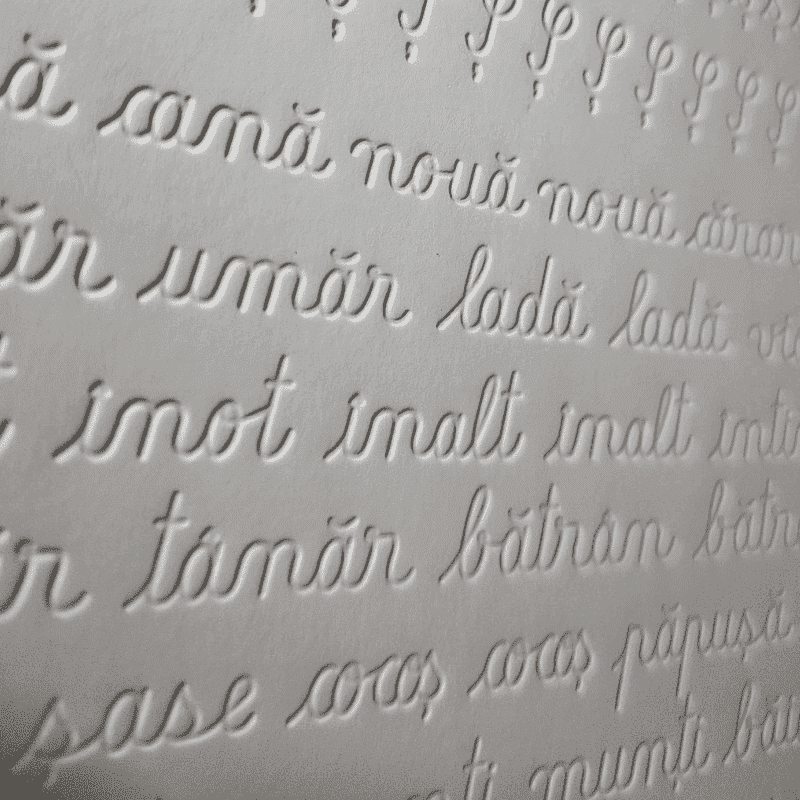 cană nouă nouă
umăr ladă ladă
înot înalt înalt
tânăr bătrân
șase cocoș cocoș păpușă
munți